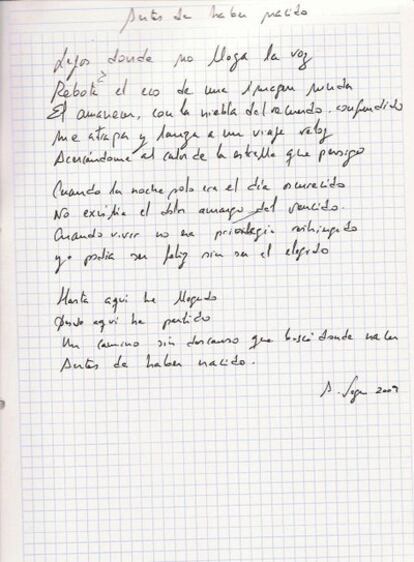 Antes de haber nacido
Lejos donde no llega la voz
Rebota el eco de una imagen muda
El amanecer, con la niebla del recuerdo, confundido
me atrapa y lanza a un viaje veloz
Acercándome al calor de la estrella que persigo
Cuando la noche solo era el día oscurecido
No existía el dolor amargo del vencido.
Cuando vivir no era privilegio restringido
yo podía ser feliz sin ser el elegido
Hasta aquí he llegado
Desde aquí he partido
Un camino sin descanso que buscó donde nacer
Antes de haber nacido.
A. Vega 2009